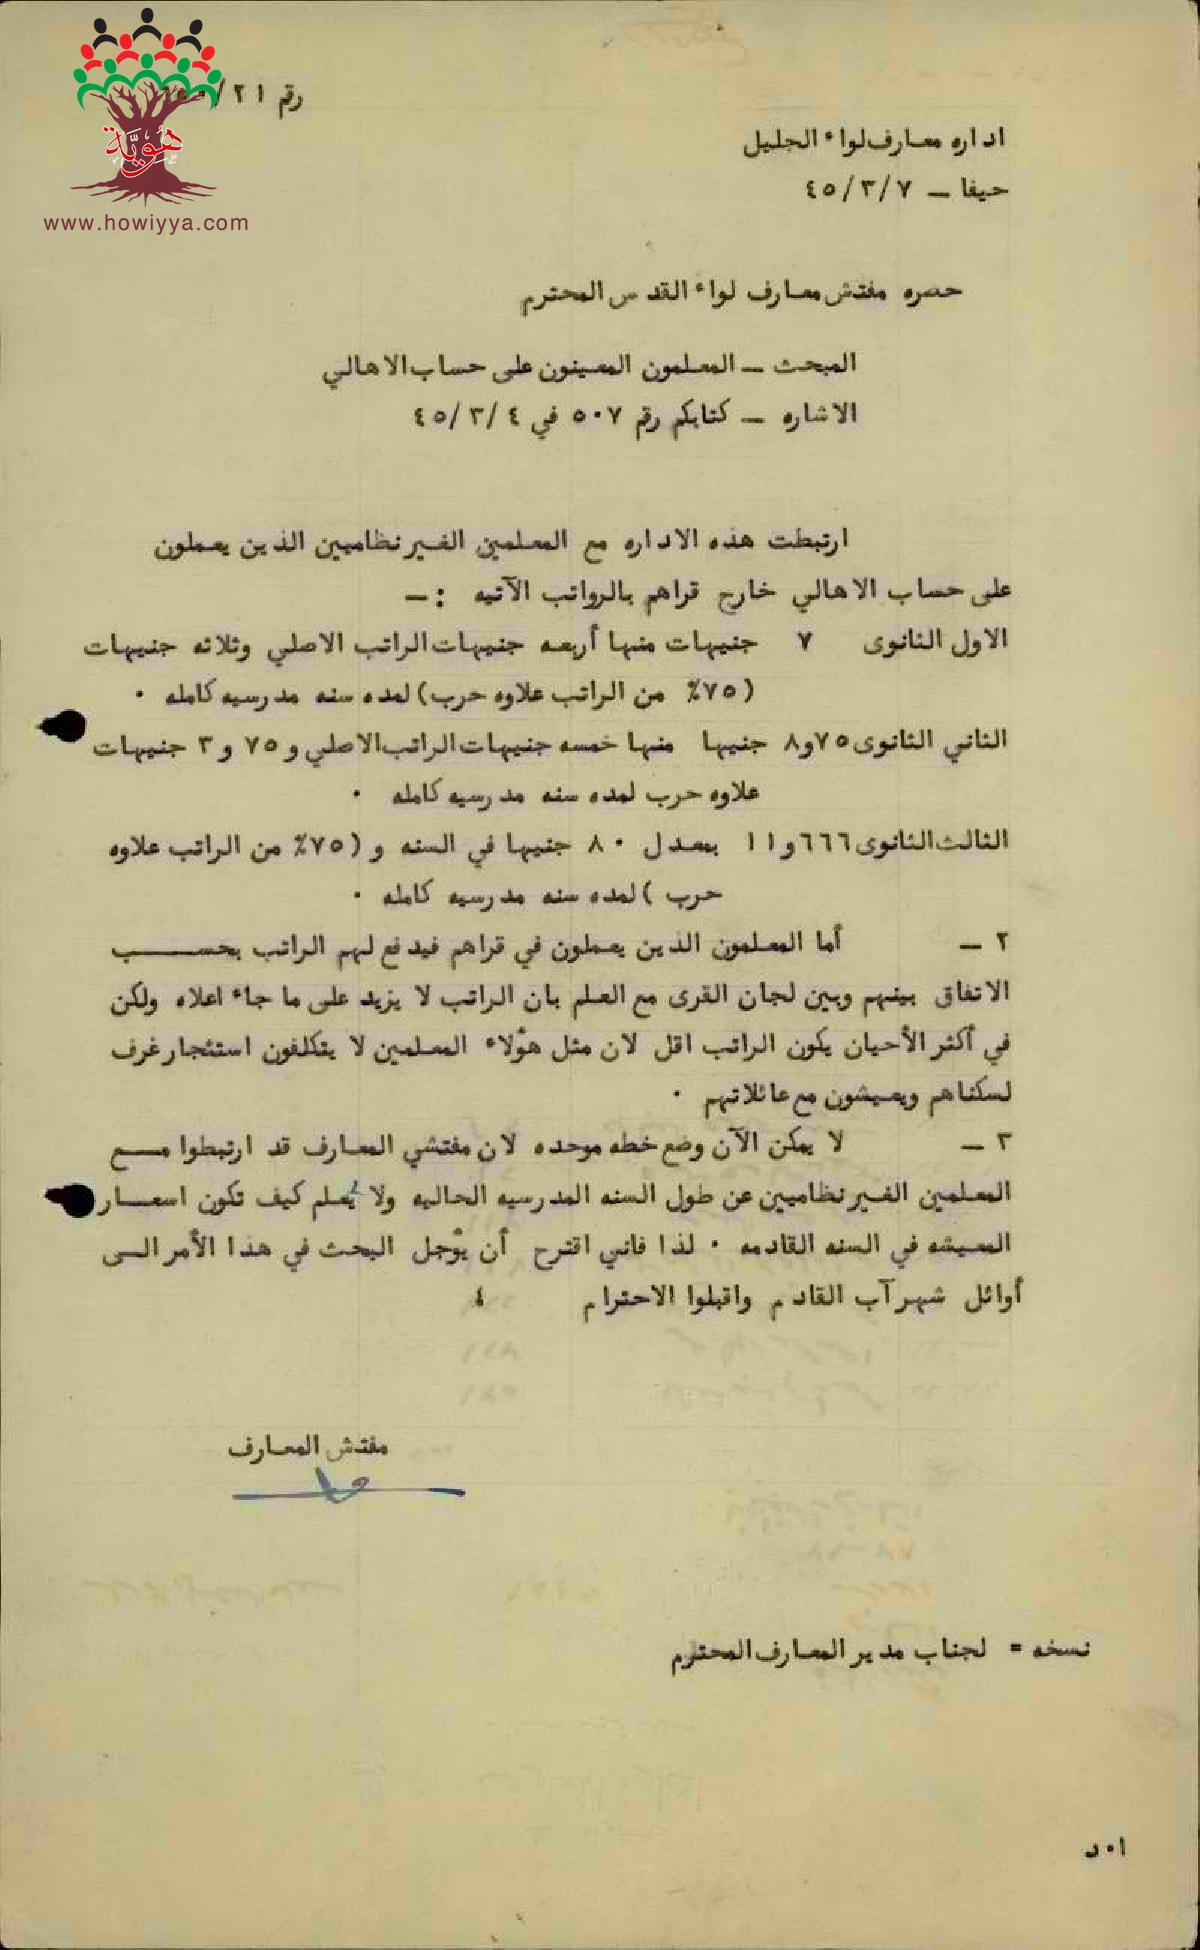 رقم ٢١/
هُوِيَّة
www.howiyya.com
اداره معارف لواء الجليل
حيفا — ٤٥/٣/٧
حضره مفتش معارف لواء القدس المحترم
المبحث — المعلمون المعينون على حساب الاهالي
الاشاره — كتابكم رقم ٥٠٧ في ٤٥/٣/٤
ارتبطت هذه الاداره مع المعلمين الغير نظاميين الذين يعملون
على حساب الاهالي خارج قراهم بالرواتب الآتيه :—
الاول الثانوى ٧ جنيهات منها أربعه جنيهات الراتب الاصلي وثلاثه جنيهات
(٧٥٪ من الراتب علاوه حرب) لمده سنه مدرسيه كامله ٠
الثاني الثانوى ٧٥و٨ جنيها منها خمسه جنيهات الراتب الاصلي و ٧٥ و٣ جنيهات
علاوه حرب لمده سنه مدرسيه كامله ٠
الثالث الثانوى ٦٦٦و١١ بمعدل ٨٠ جنيها في السنه و (٧٥٪ من الراتب علاوه
حرب ) لمده سنه مدرسيه كامله ٠
٢ — أما المعلمون الذين يعملون في قراهم فيدفع لهم الراتب بحسب
الاتفاق بينهم وبين لجان القرى مع العلم بان الراتب لا يزيد على ما جاء اعلاه ولكن
في أكثر الأحيان يكون الراتب اقل لان مثل هؤلاء المعلمين لا يتكلفون استئجار غرف
لسكناهم ويعيشون مع عائلاتهم ٠
٣ — لا يمكن الآن وضع خطه موحده لان مفتشي المعارف قد ارتبطوا مع
المعلمين الغير نظاميين عن طول السنه المدرسيه الحاليه ولا يعلم كيف تكون اسعار
المعيشه في السنه القادمه ٠ لذا فاني اقترح أن يؤجل البحث في هذا الأمر الى
أوائل شهر آب القادم واقبلوا الاحترام
مفتش المعارف
نسخه = لجناب مدير المعارف المحترم
ا٠د